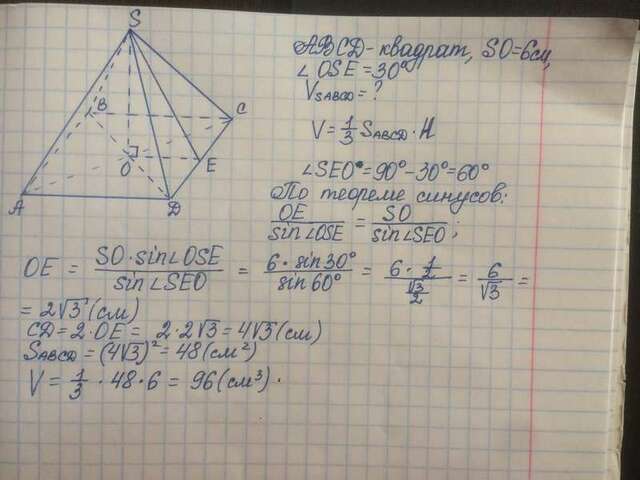 S
A
B
O
D
E
C
ABCD - квадрат, SO=6см,
∠OSE=30°
V_SABCD = ?
V = 1/3 S_ABCD · H
∠SEO = 90° - 30° = 60°
По теореме синусов:
OE/sin∠OSE = SO/sin∠SEO;
OE = SO·sin∠OSE/sin∠SEO = 6·sin30°/sin60° = 6·1/2/√3/2 = 6/√3 =
= 2√3 (см)
CD = 2·OE = 2·2√3 = 4√3 (см)
S_ABCD = (4√3)² = 48 (см²)
V = 1/3 · 48 · 6 = 96 (см³).